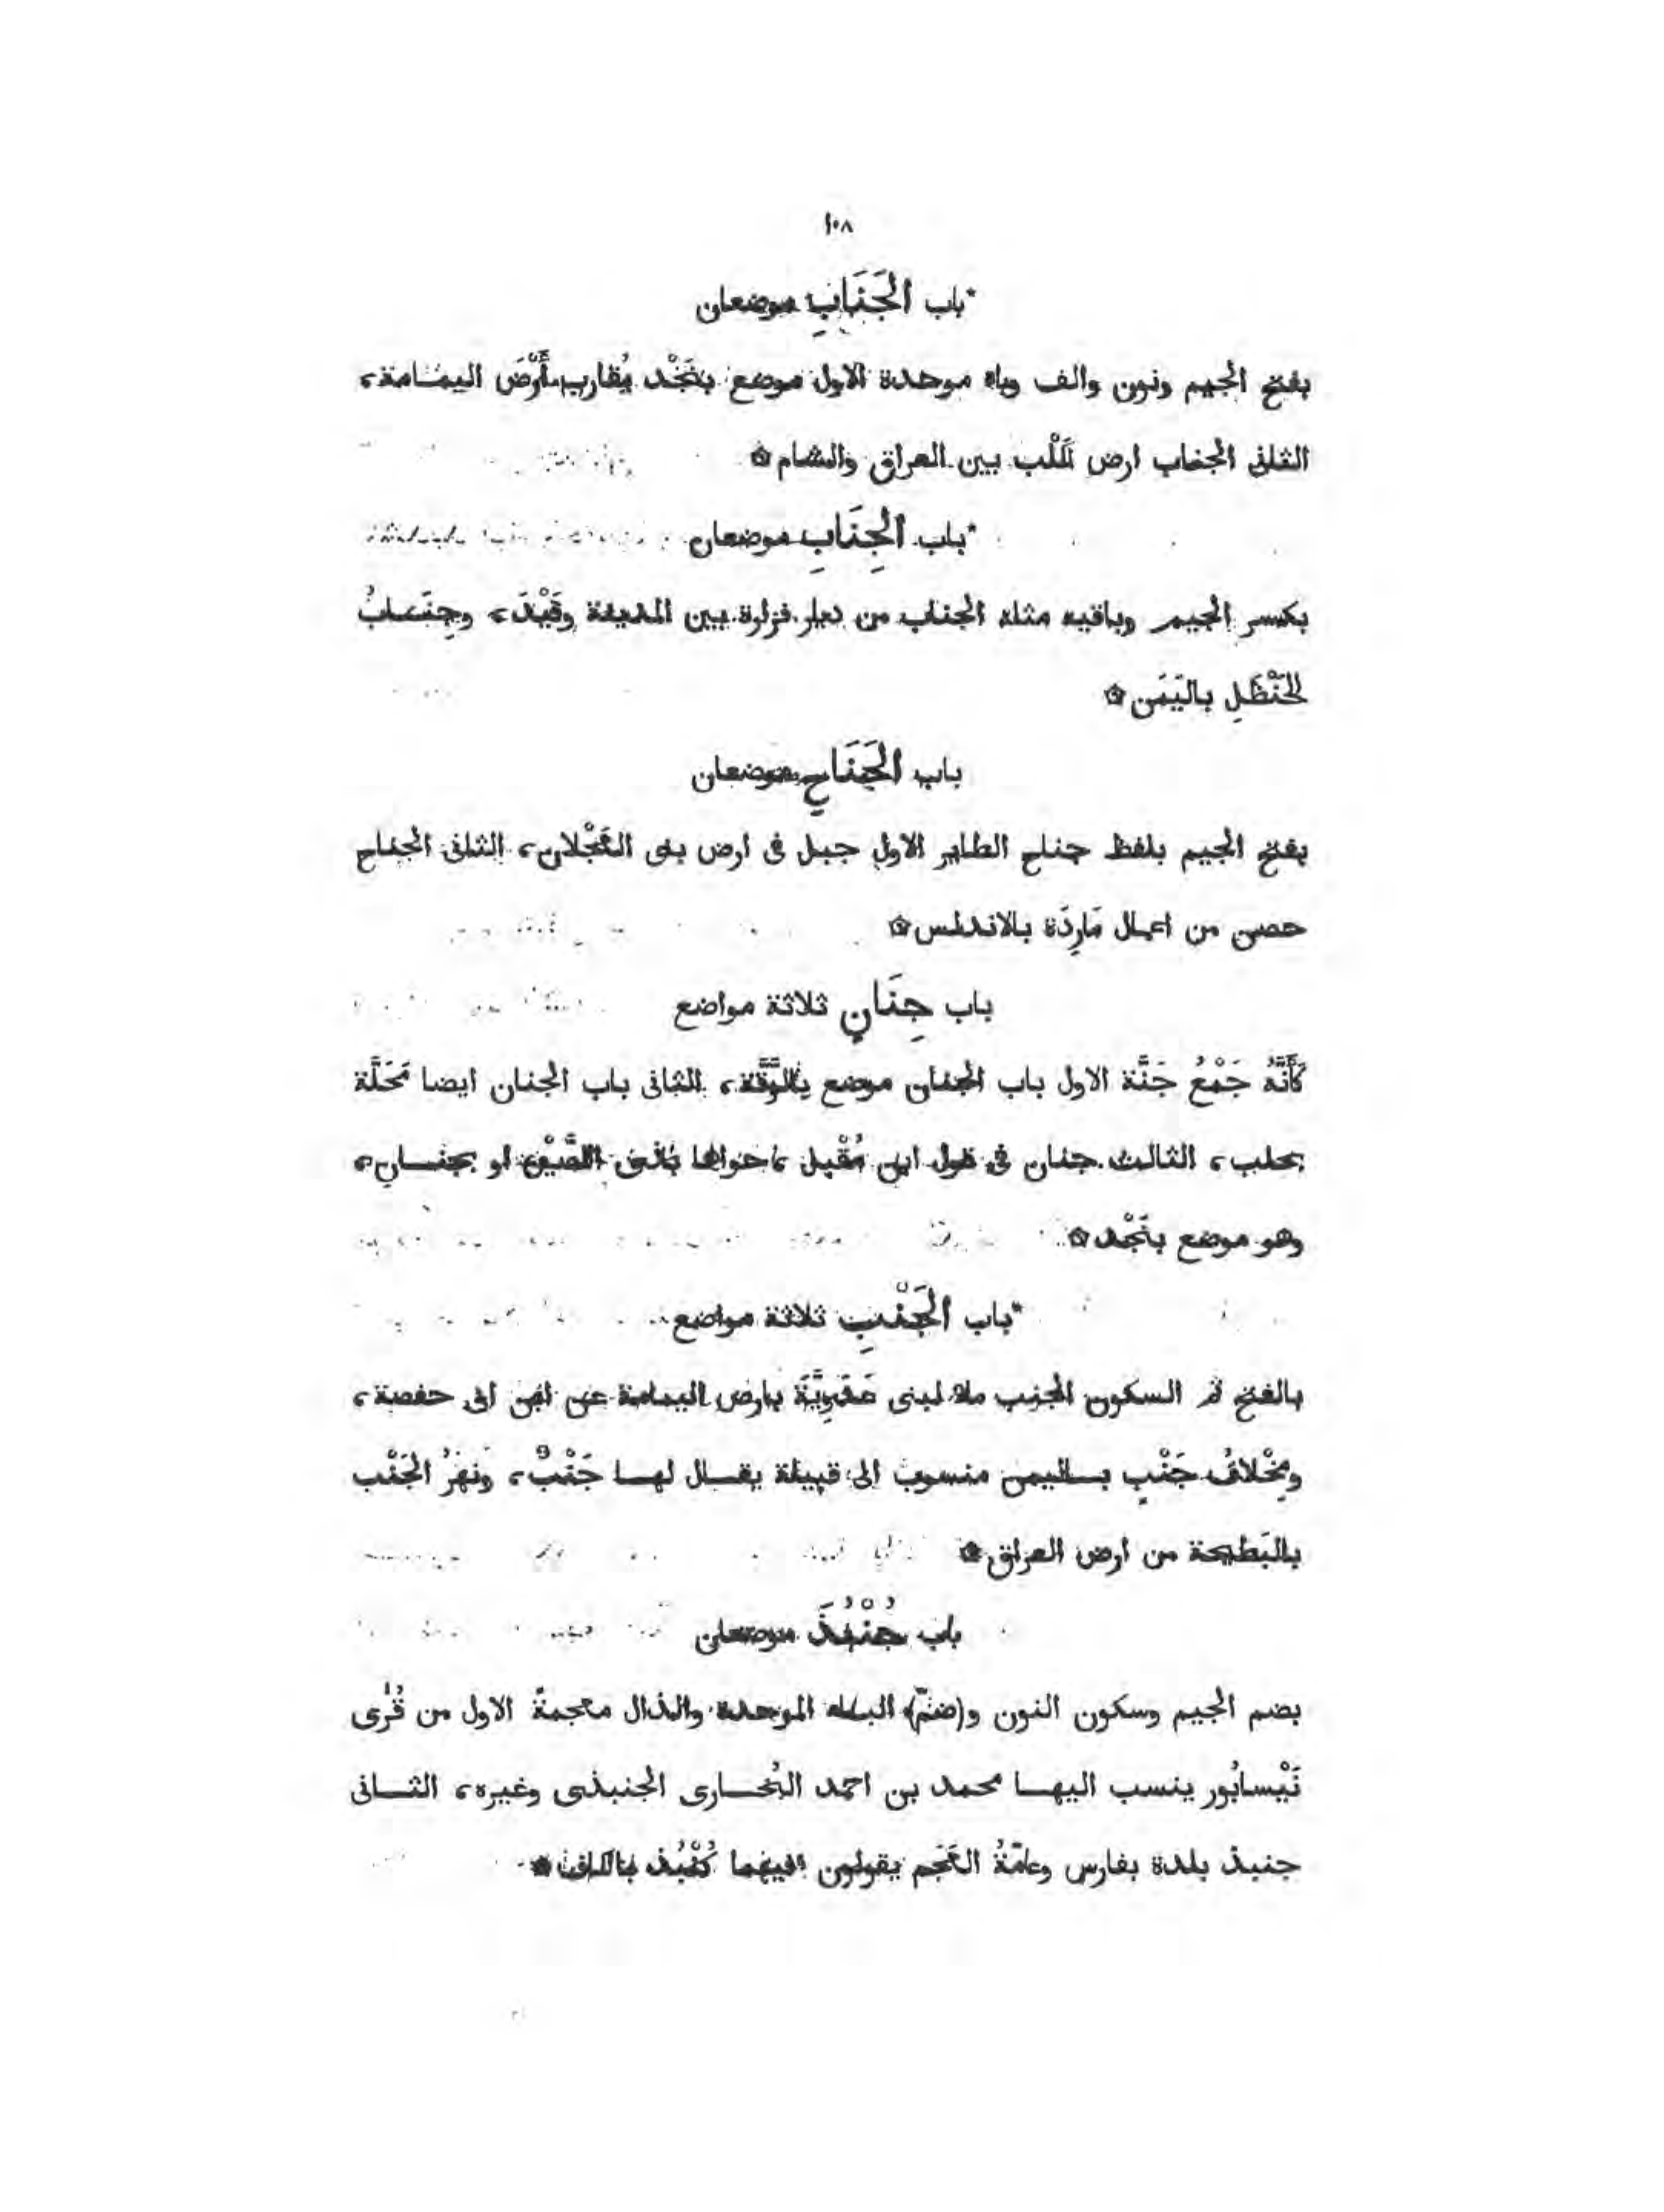 ١٠٨
*باب الجَنَابِ موضعان
بفتح الجيم ونون والف وباء موحدة الاول موضع بنَجْد يُقارب أَرْضَ اليمامة،
الثانى الجناب ارض كَلْب بين العراق والشام ۞
*باب الجِنَابِ موضعان
بكسر الجيم وباقيه مثله الجناب من ديار فزارة بين المدينة وفَيْدَ، وجِنَابُ
الحَنْظَلِ باليَمَن ۞
باب الجَنَاحِ موضعان
بفتح الجيم بلفظ جناح الطاير الاول جبل فى ارض بنى العَجْلان، الثانى الجناح
حصن من اعمال مَارِدَة بالاندلس ۞
باب جِنَانٍ ثلاثة مواضع
كَأَنَّهُ جَمْعُ جَنَّة الاول باب الجنان موضع بالرَّقَّة، الثانى باب الجنان ايضا مَحَلَّة
بحلب، الثالث جنان فى قول ابن مُقْبِل، او بجنان،
وهو موضع بنَجْد ۞
*باب الجَنْبِ ثلاثة مواضع
بالفتح ثم السكون الجنب ماء لبنى عَدَوِيَّةَ بارض اليمامة عن ابن ابى حفصة،
ومِخْلافُ جَنْبٍ باليمن منسوب الى قبيلة يقال لها جَنْبٌ، ونَهْرُ الجَنْب
بالبَطيحة من ارض العراق ۞
باب جُنْبُذَ موضعان
بضم الجيم وسكون النون و(ضمّ) الباء الموحدة والذال معجمةً الاول من قُرَى
نَيْسابُور ينسب اليها محمد بن احمد البُخارى الجنبذى وغيره، الثانى
جنبذ بلدة بفارس وعامّةُ العَجَم يقولون فيهما كُنْبُذ بالكاف ۞